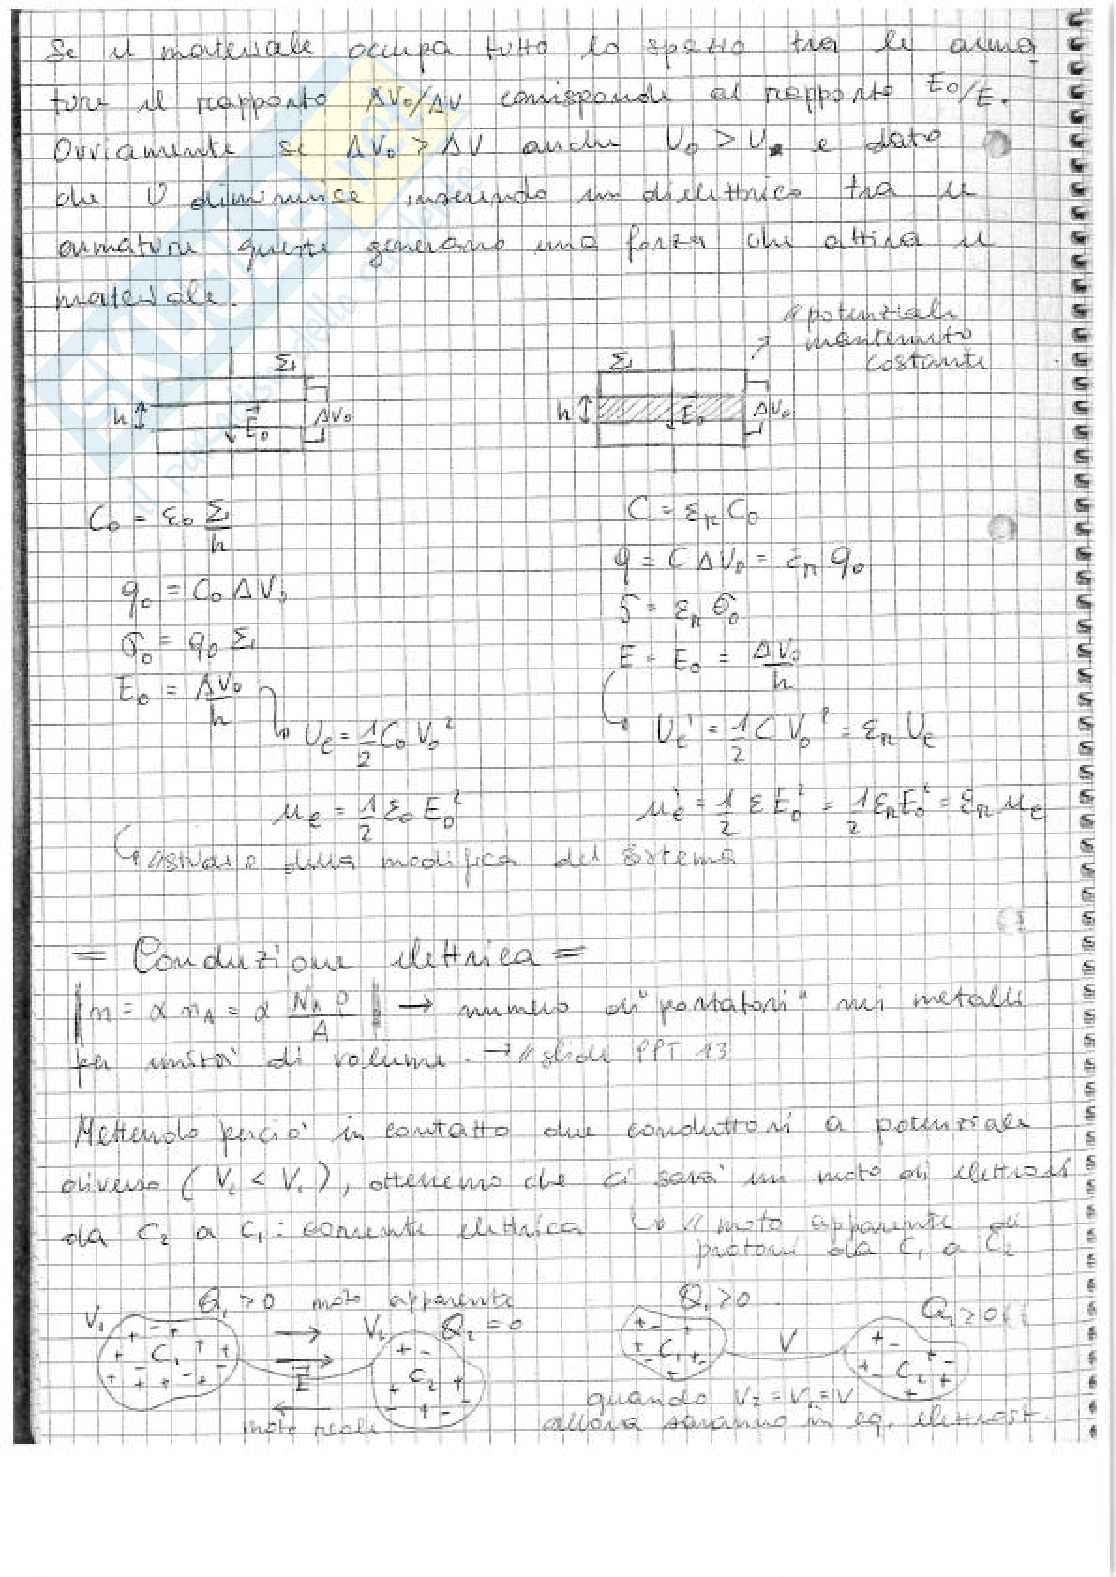 Se il materiale occupa tutto lo spazio tra le arma
ture il rapporto ΔV₀/ΔV corrisponde al rapporto E₀/E.
Ovviamente se ΔV₀ > ΔV anche U₀ > U e dato
che U diminuisce inserendo un dielettrico tra le
armature queste generano una forza che attira il
materiale.
// potenziale
mantenuto
costante
Σ
h
E₀
ΔV₀
Σ
h
E₀
ΔV₀
C₀ = ε₀ Σ/h
q₀ = C₀ ΔV₀
σ₀ = q₀ Σ
E₀ = ΔV₀/h
Ue = 1/2 C₀ V₀²
ue = 1/2 ε₀ E₀²
C = εr C₀
q = C ΔV₀ = εr q₀
σ = εr σ₀
E = E₀ = ΔV₀/h
Ue' = 1/2 C V₀² = εr Ue
ue' = 1/2 ε E₀² = 1/2 εr E₀² = εr ue
della modifica del sistema
= Conduzione elettrica =
n = α nA = α NA ρ/A → numero di "portatori" nei metalli
per unità di volume. → // slide PPT 13
Mettendo perciò in contatto due conduttori a potenziale
diverso (V₂ < V₁), otteremo che ci sarà un moto di elettroni
da C₂ a C₁: corrente elettrica ↳ // moto apparente di
protoni da C₁ a C₂
V₁
Q₁ > 0
moto apparente
V₂
Q₂ = 0
C₁
E
C₂
moto reale
Q₁ > 0
C₁
V
C₂
quando V₂ = V₁ = V
allora saranno in eq. elettrost.
SKUOLA.net
il paradiso dello studente